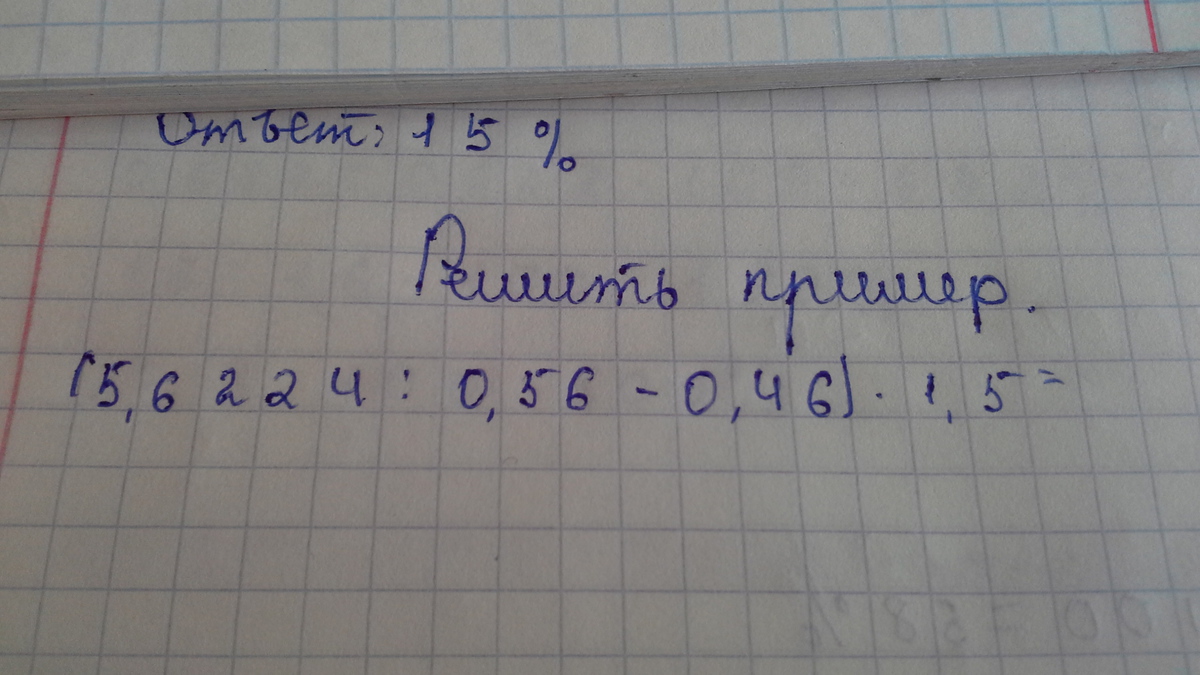 Ответ: 15 %
Решить пример.
(5,6224 : 0,56 - 0,46) · 1,5 =